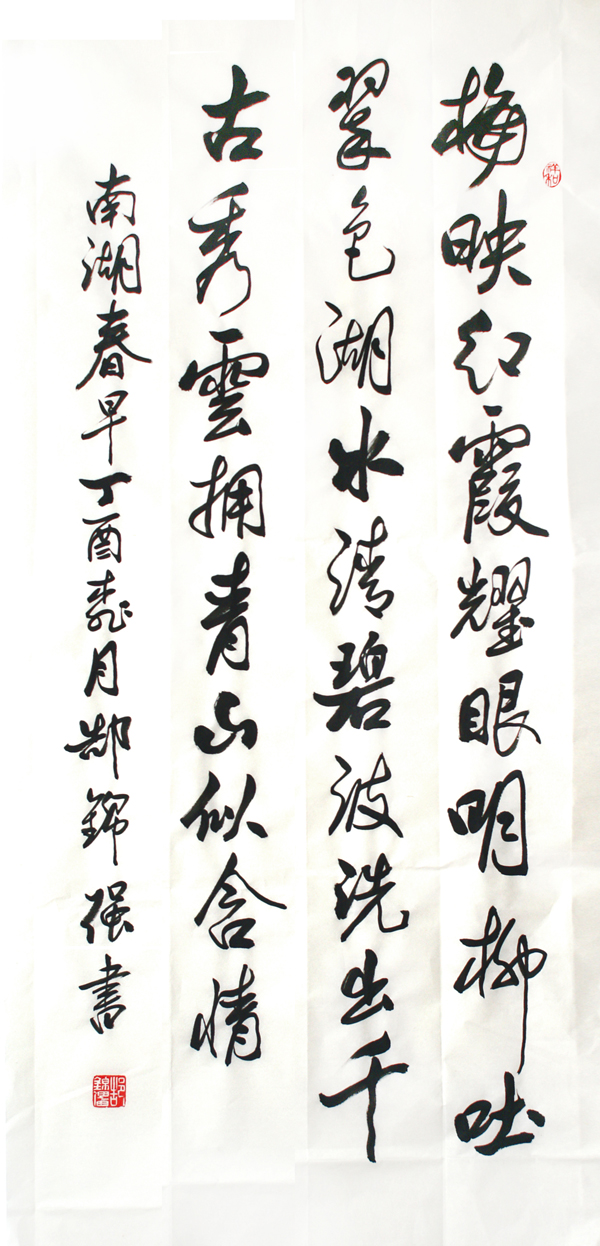 梅映红霞耀眼明柳吐
翠色湖水清碧波洗出千
古秀雲拥青山似含情
南湖春早丁酉春月郜錦强書
祥和